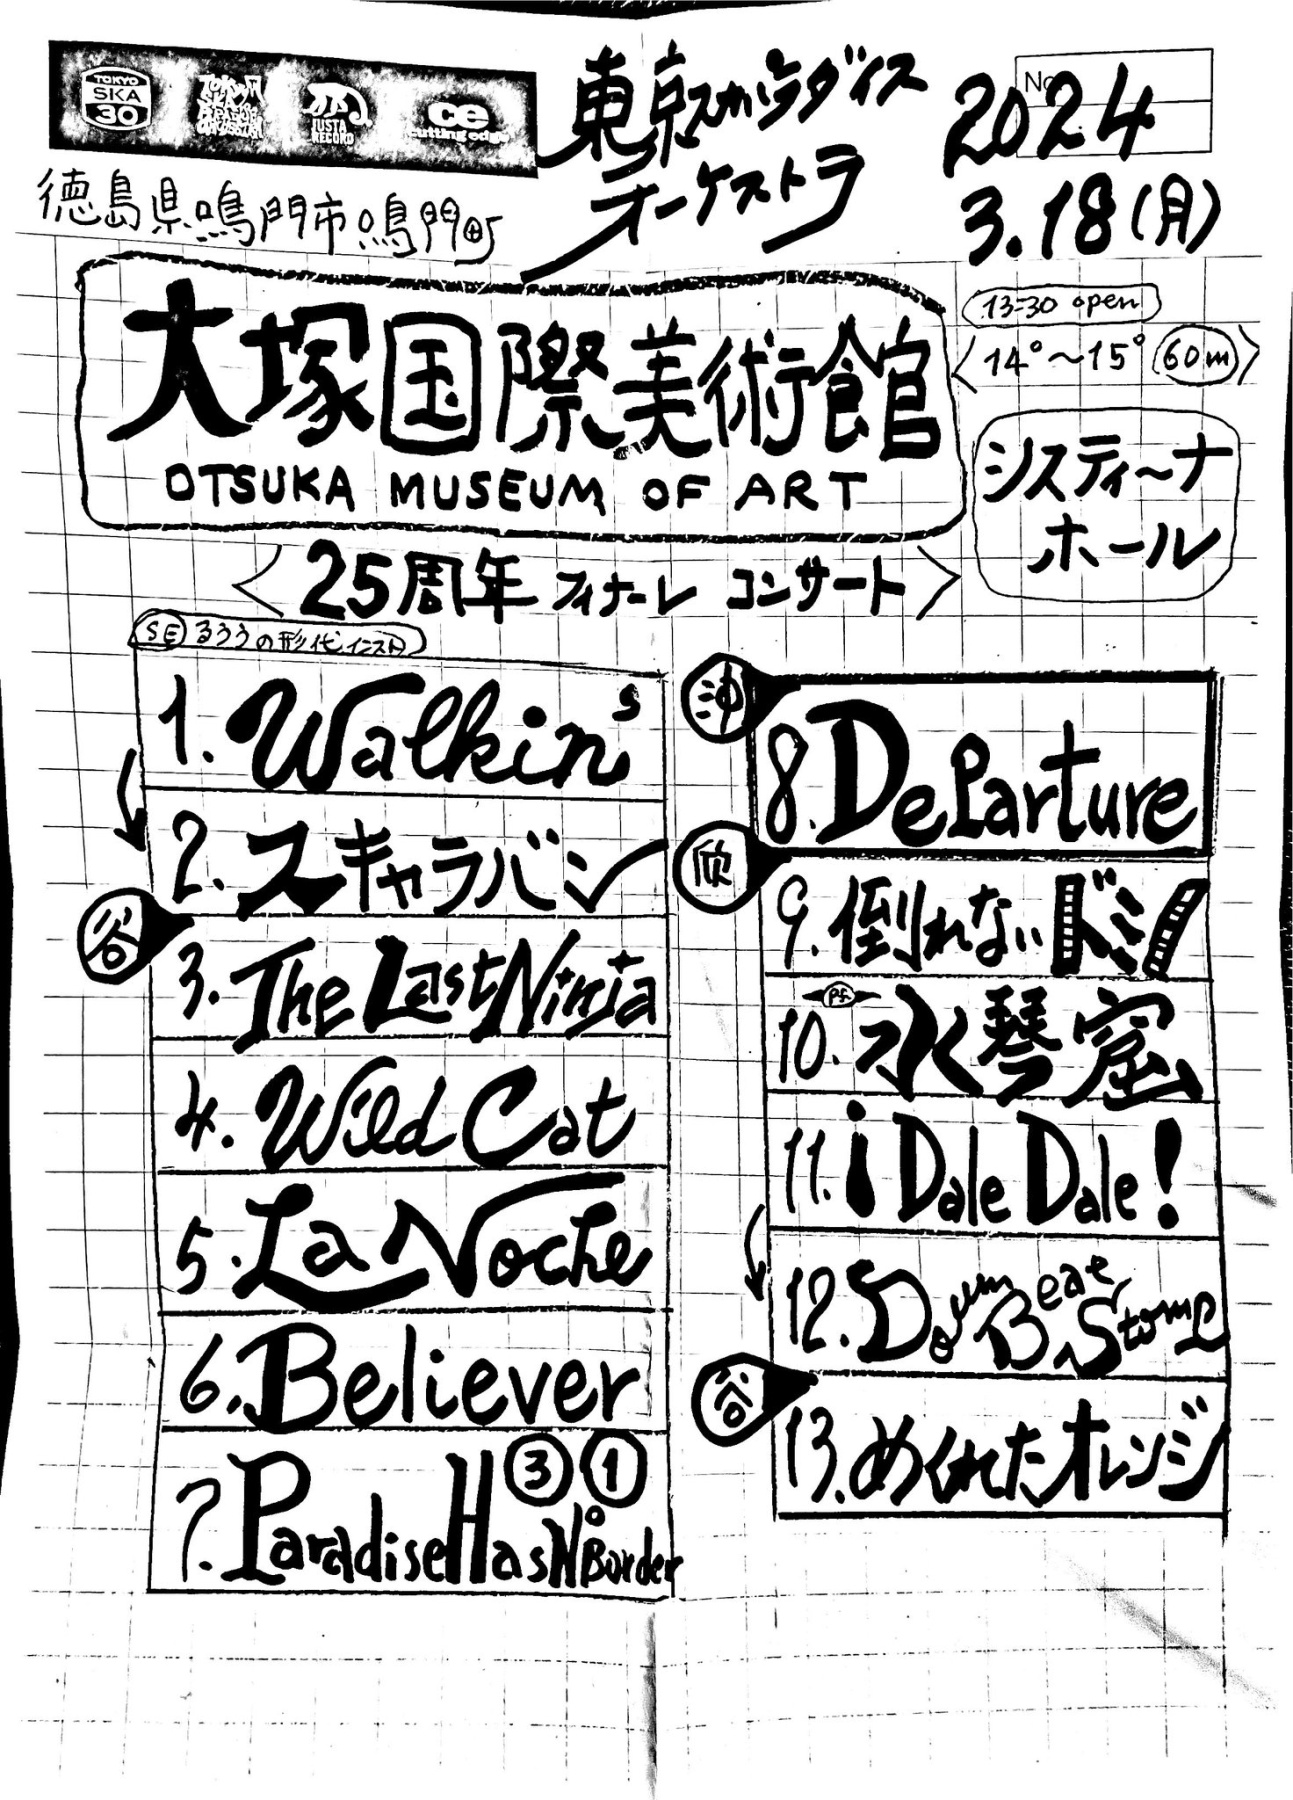 TOKYO
SKA
30
JUSTA
RECORD
ce
cutting edge
東京スカパラダイス
オーケストラ
No.
2024
3.18(月)
徳島県鳴門市鳴門町
大塚国際美術館
OTSUKA MUSEUM OF ART
13:30 open
14°〜15° 60m
システィーナ
ホール
25周年 フィナーレ コンサート
SE るろうの形代インスト
1. Walkin's
2. スキャラバン
谷
3. The Last Ninja
4. Wild Cat
5. La Noche
6. Believer
③ ①
7. Paradise Has No Border
沖
8. Departure
欣
9. 倒れないドミノ
10. 水琴窟
11. ¡Dale Dale!
12. Down Beat Stomp
谷
13. めくれたオレンジ